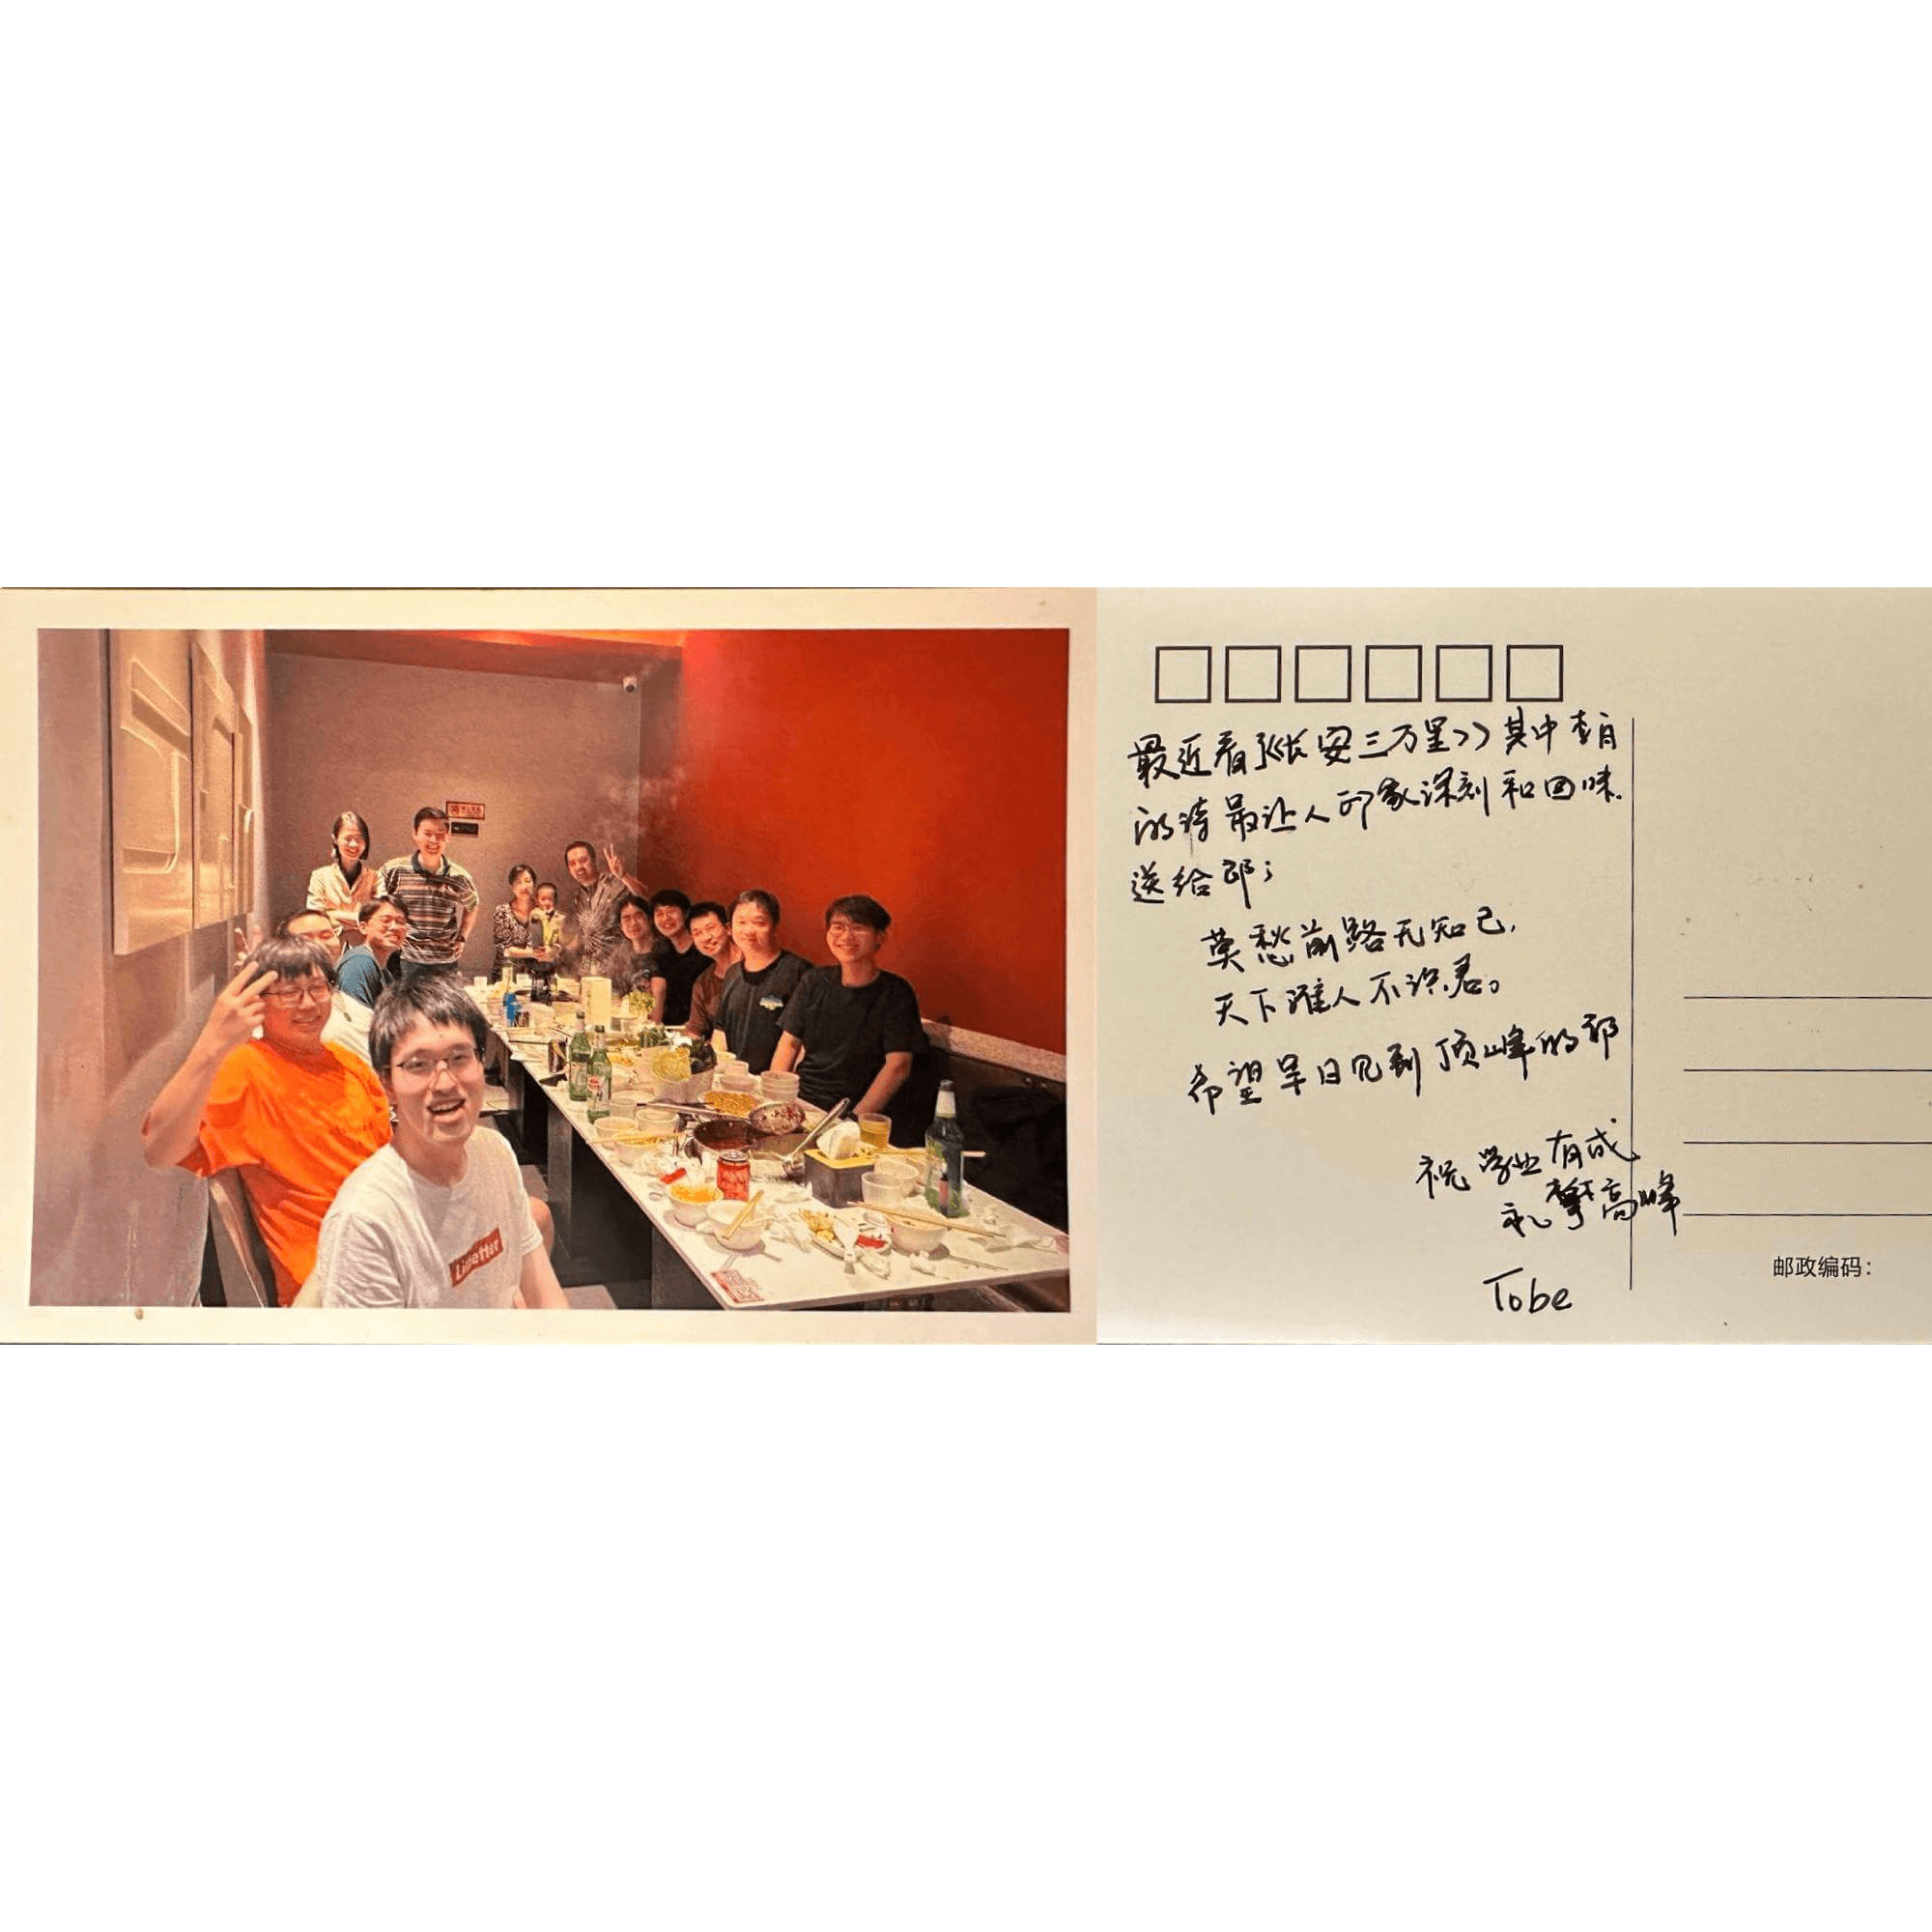 Lipetter
最近看了《长安三万里》其中李白
的诗最让人印象深刻和回味.
送给邵:
莫愁前路无知己,
天下谁人不识君。
希望早日见到顶峰的邵
祝学业有成
永攀高峰
Tobe
邮政编码: